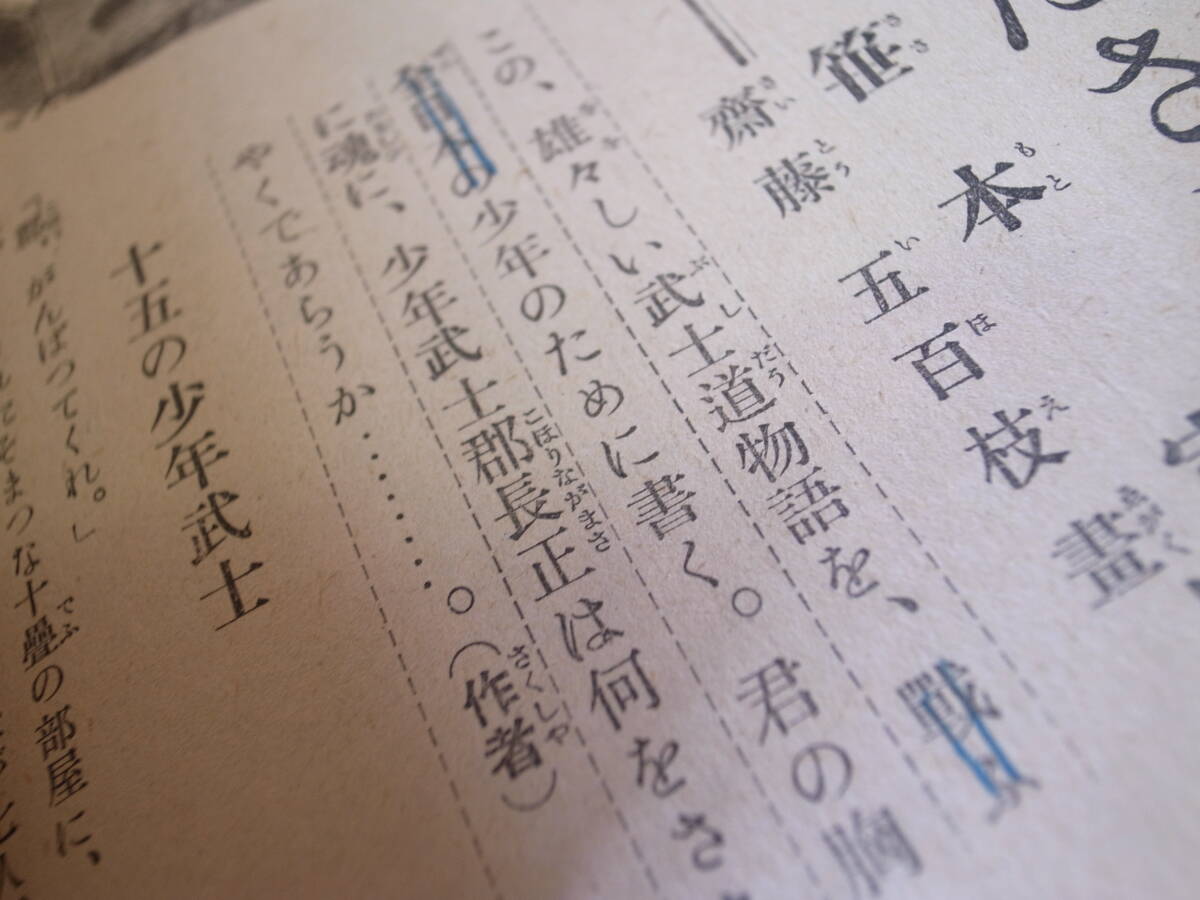 笹本
齋藤五百枝畫
この、雄々しい武士道物語を、戰ふ
日本の少年のために書く。君の胸
に魂に、少年武士郡長正は何をささ
やくであらうか………。(作者)
十五の少年武士
がんばつてくれ。」
まつな十疊の部屋に、